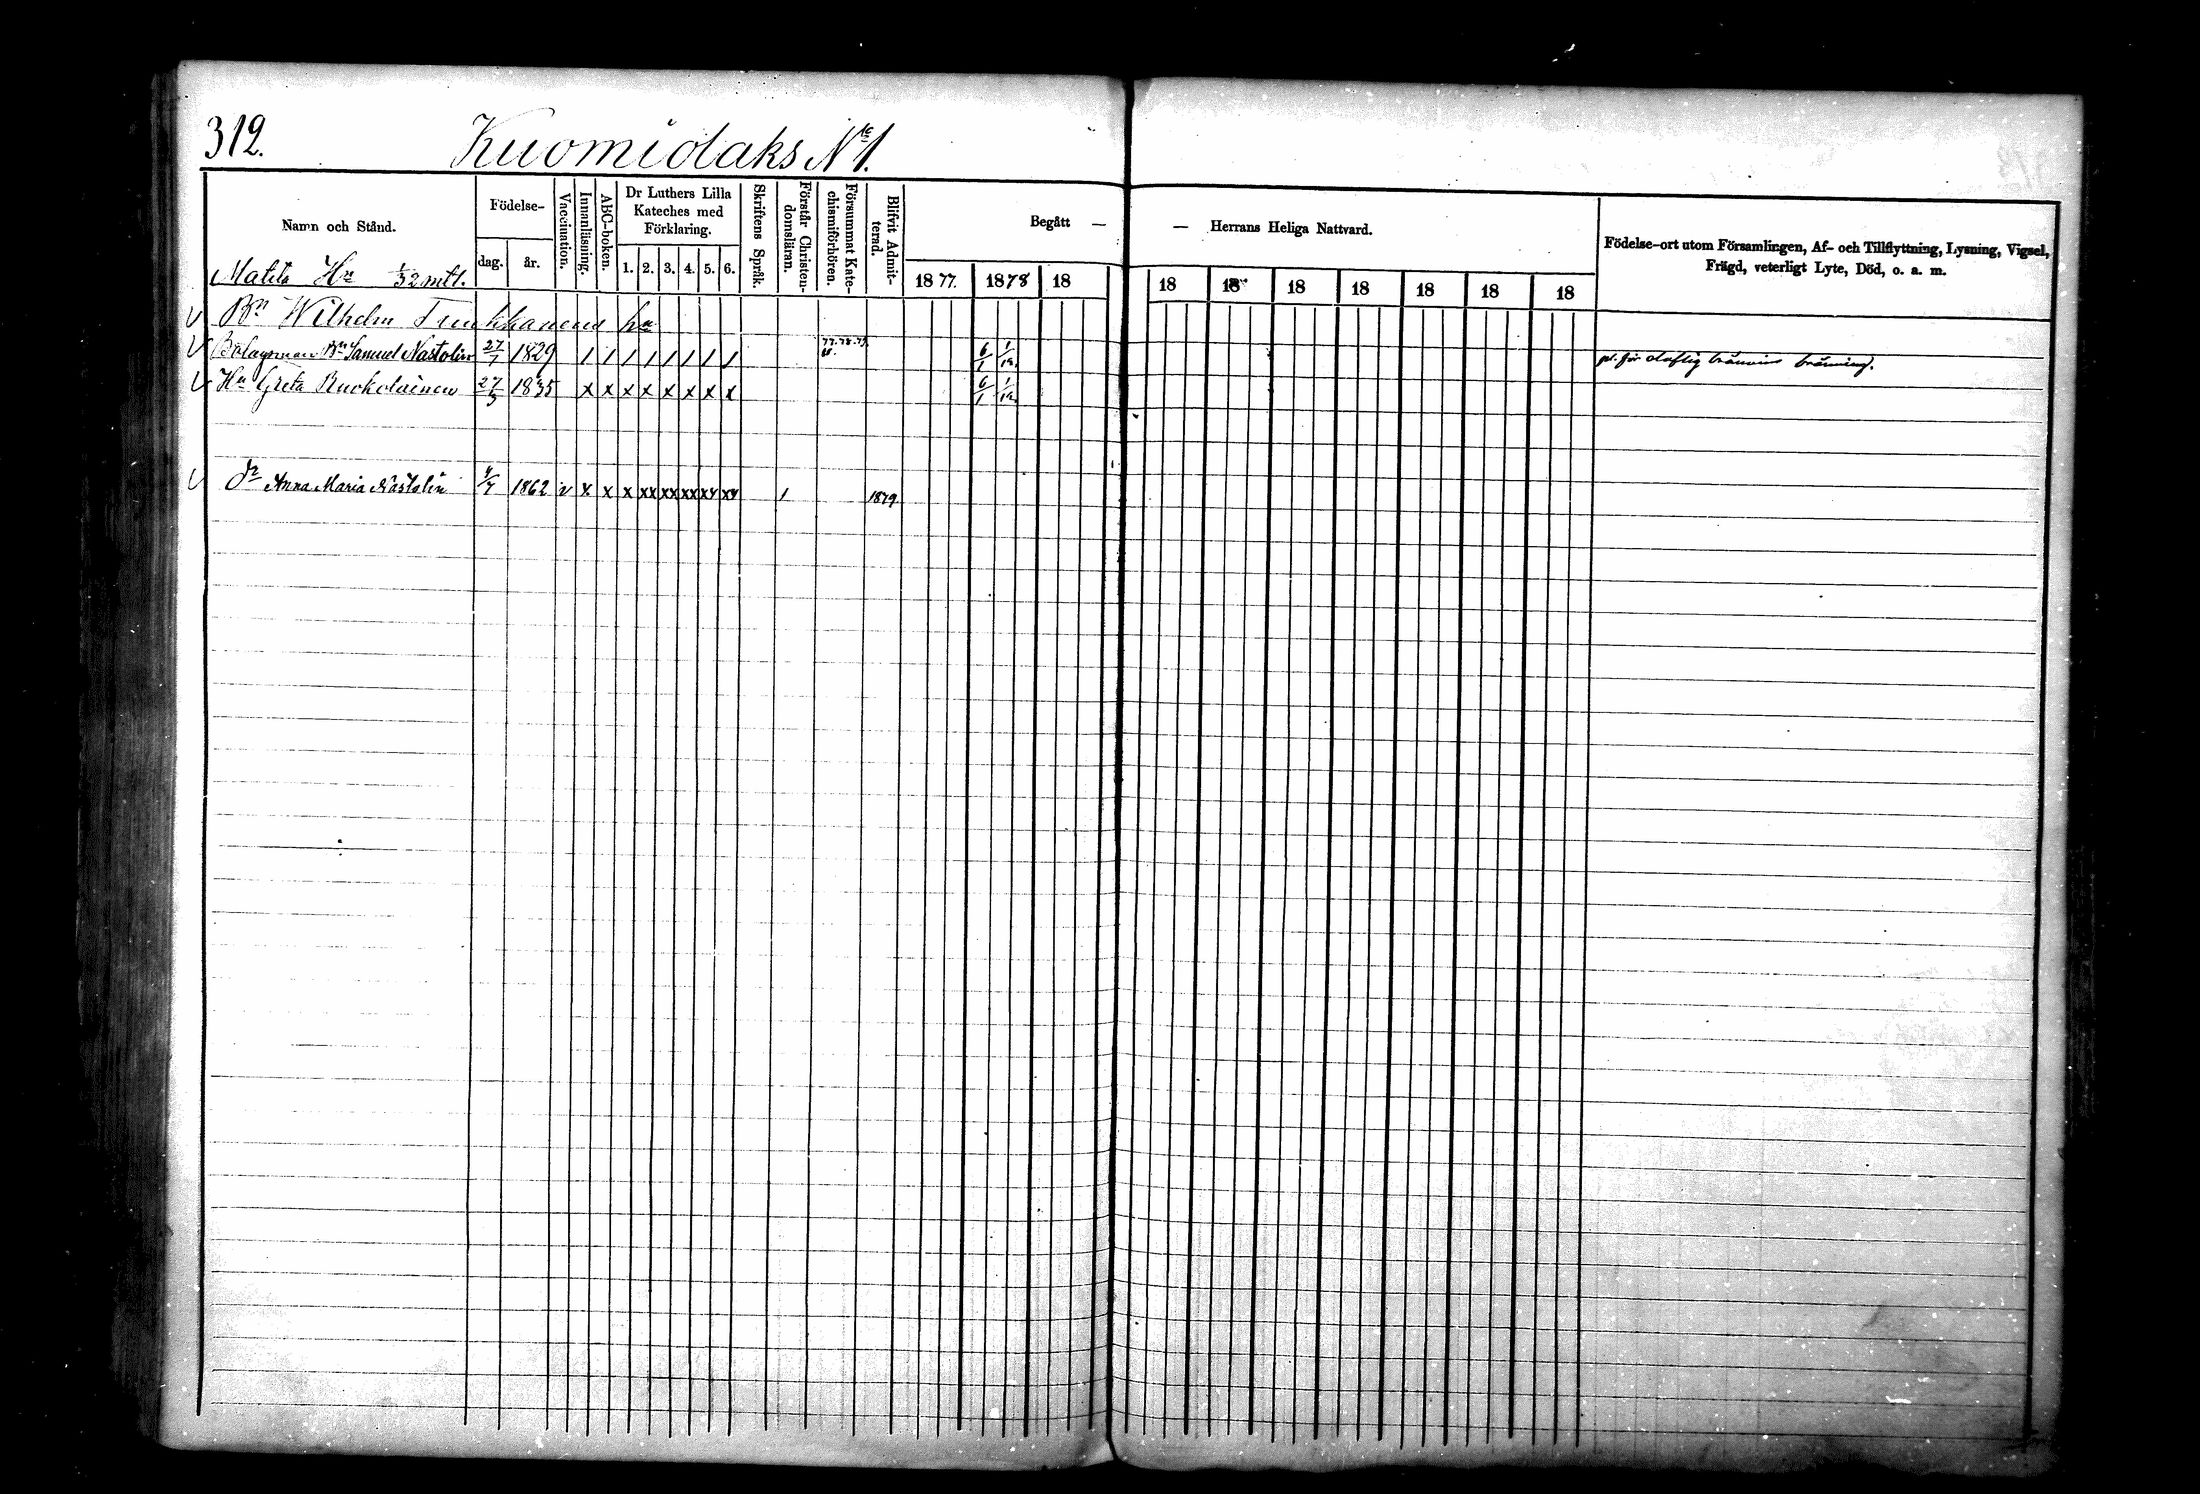 312.
Kuomiolaks No 1.
Namn och Stånd.
Födelse-
dag.
år.
Vaccination.
Innanläsning.
ABC-boken.
Dr Luthers Lilla
Kateches med
Förklaring.
1. 2. 3. 4. 5. 6.
Skriftens Språk.
Förstår Christen-
domsläran.
Försummat Kate-
chismiförhören.
Blifvit Admit-
terad.
Begått —
— Herrans Heliga Nattvard.
1877. 1878 18 18 18 18 18 18 18 18
Födelse-ort utom Församlingen, Af- och Tillflyttning, Lysning, Vigsel,
Frägd, veterligt Lyte, Död, o. a. m.
Matila Hn 1/32 mtl.
v Bn Wilhelm hn
v Bolagsman Bn Samuel Nastolin 27/7 1829 / / / / / / / / 77.78.79. 6/1 1/12. pl. för olaflig bränvins bränning.
v Hu Greta Ruokolainen 27/3 1835 x x x x x x x x 6/1 1/12.
v Dr Anna Maria Nastolin 4/7 1862 v x x x xx xx xx xx xx 1 1879